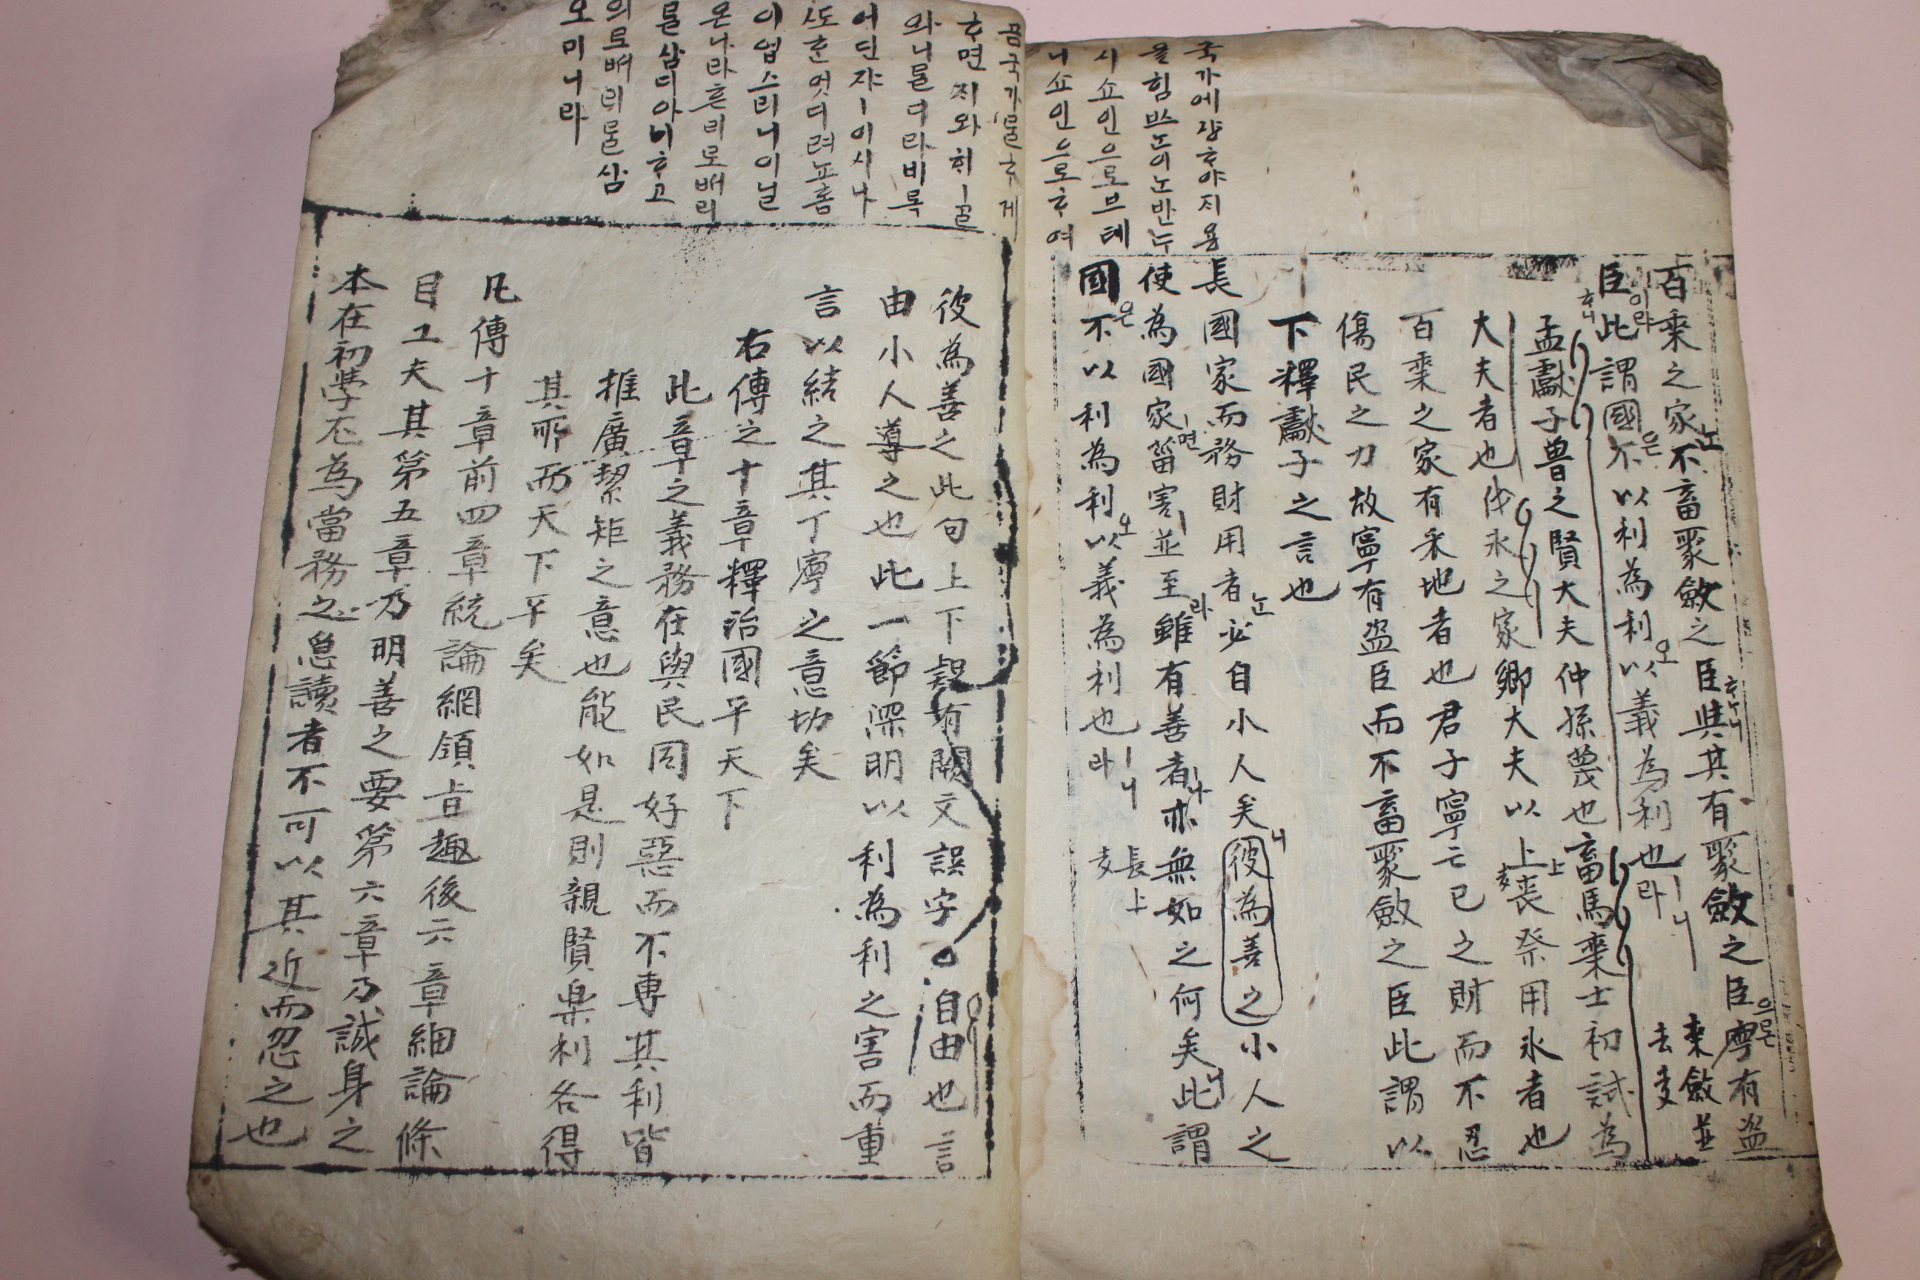 국가에쟝ᄒᆞ야지용
을힘쓰는이는반ᄃᆞ
시쇼인으로브테
니쇼인으로ᄒᆞ여
百乘之家는不畜聚斂之臣ᄒᆞᄂᆞ니與其有聚斂之臣으론寧有盜
臣이라ᄒᆞ니此謂國은不以利為利오以義為利也ㅣ니라 乘斂並去声
孟獻子魯之賢大夫仲孫蔑也畜馬乘士初試為
大夫者也伐氷之家卿大夫以上喪祭用氷者也
百乘之家有采地者也君子寧亡已之財而不忍
傷民之力故寧有盜臣而不畜聚斂之臣此謂以
下釋獻子之言也
長國家而務財用者는必自小人矣니彼為善之小人之
使為國家ㅣ면菑害ㅣ並至라雖有善者ㅣ나亦無如之何矣니此謂
國은不以利為利오以義為利也ㅣ니라 長上声
곰국가를ᄒᆞ게
ᄒᆞ면지와히ㅣᄀᆞᆯ
와니를디라비록
어딘쟈ㅣ이시나
ᄯᅩᄒᆞᆫ엇디려뇨홈
이업스리니이닐
온나라흔리로ᄡᅥ리
를삼디아니ᄒᆞ고
의로ᄡᅥ리를삼
오미니라
彼為善之此句上下疑有闕文誤字○自由也言
由小人導之也此一節深明以利為利之害而重
言以結之其丁寧之意切矣
右傳之十章釋治國平天下
此章之義務在與民同好惡而不專其利皆
推廣絜矩之意也能如是則親賢樂利各得
其所而天下平矣
凡傳十章前四章統論綱領旨趣後六章細論條
目工夫其第五章乃明善之要第六章乃誠身之
本在初學尤為當務之急讀者不可以其近而忽之也